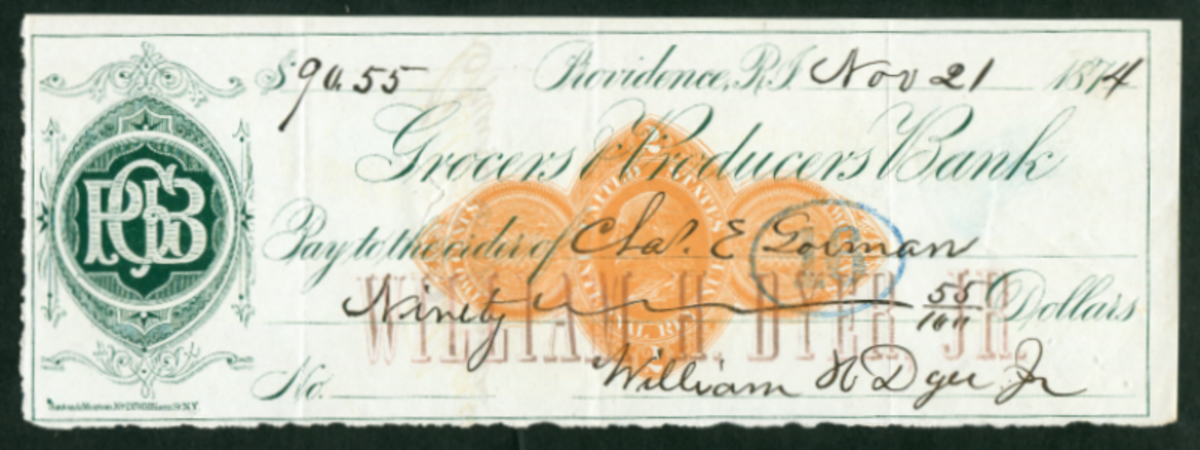 $ 90.55 Providence, R.I. Nov 21 1874
Grocers & Producers Bank
Pay to the order of Chas. E Gorman
Ninety 55/100 Dollars
WILLIAM H. DYER, JR.
No. William H Dyer Jr
PGB
UNITED STATES